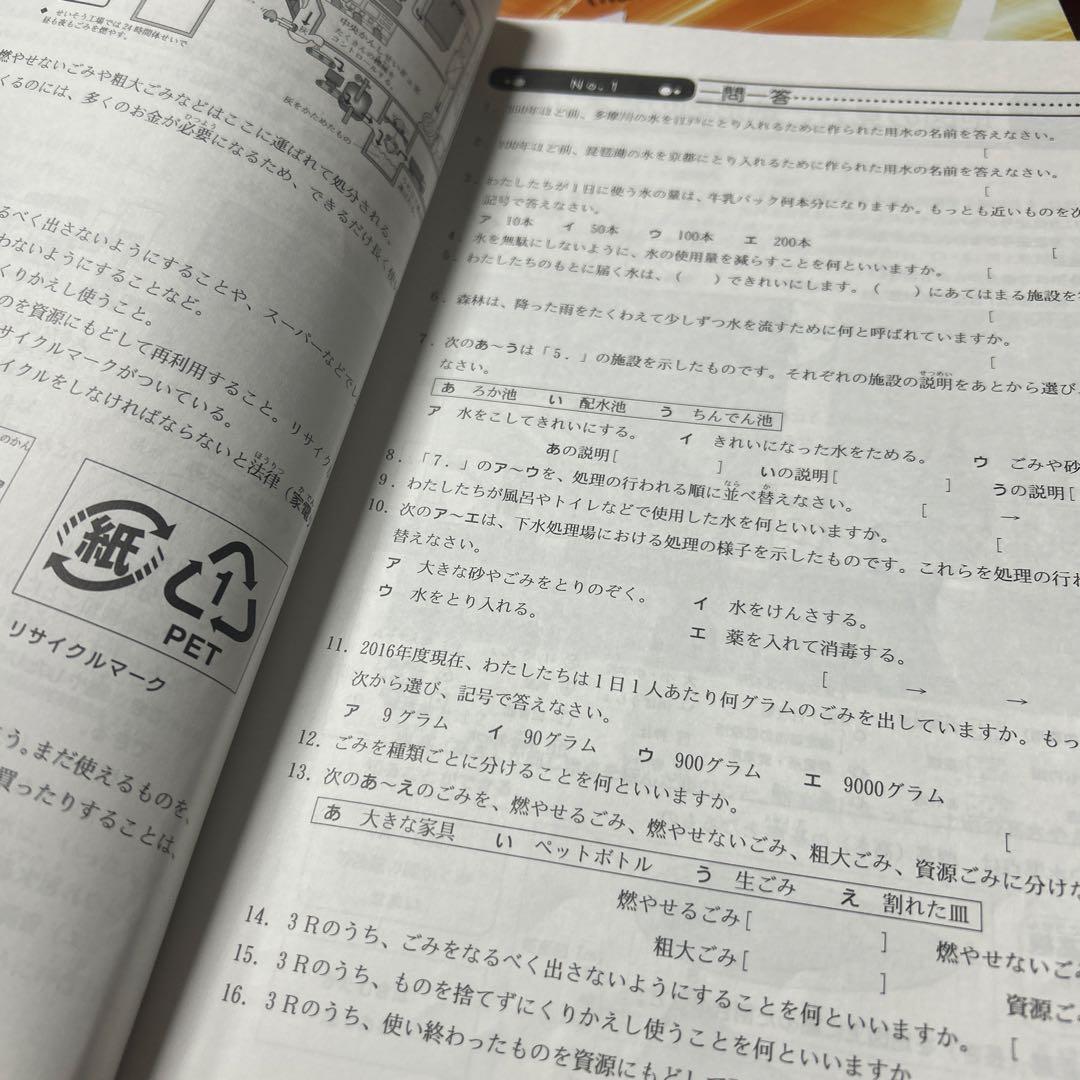 ◆ せいそう工場では24時間体せいで
昼も夜もごみを燃やす。
灰
中央せいぎょ室
たくさんの機械を
コントロールする
灰をかためたもの
燃やせないごみや粗大ごみなどはここに運ばれて処分される。
くるのには、多くのお金が必要になるため、できるだけ長く使
ひつよう
るべく出さないようにすることや、スーパーなどでレ
わないようにすることなど。
くりかえし使うこと。
のを資源にもどして再利用すること。リサイク
サイクルマークがついている。
イクルをしなければならないと法律（家電
ほうりつ
のかん
紙
1
PET
リサイクルマーク
う。まだ使えるものを、
買ったりすることは、
No.1
一問一答
年ほど前、多摩川の水を江戸にとり入れるために作られた用水の名前を答えなさい。
[
年ほど前、琵琶湖の水を京都にとり入れるために作られた用水の名前を答えなさい。
[
3．わたしたちが1日に使う水の量は、牛乳パック何本分になりますか。もっとも近いものを次
記号で答えなさい。
ア 10本 イ 50本 ウ 100本 エ 200本
[
4．水を無駄にしないように、水の使用量を減らすことを何といいますか。
[
5．わたしたちのもとに届く水は、（ ）できれいにします。（ ）にあてはまる施設を
[
6．森林は、降った雨をたくわえて少しずつ水を流すために何と呼ばれていますか。
[
7．次のあ～うは「5．」の施設を示したものです。それぞれの施設の説明をあとから選び、
せつめい
なさい。
あ ろか池 い 配水池 う ちんでん池
ア 水をこしてきれいにする。 イ きれいになった水をためる。 ウ ごみや砂
あの説明[ ] いの説明[ ] うの説明[
8．「7．」のア～ウを、処理の行われる順に並べ替えなさい。
なら か
[ →
9．わたしたちが風呂やトイレなどで使用した水を何といいますか。
[
10．次のア～エは、下水処理場における処理の様子を示したものです。これらを処理の行わ
替えなさい。
ア 大きな砂やごみをとりのぞく。 イ 水をけんさする。
ウ 水をとり入れる。 エ 薬を入れて消毒する。
[ → →
11．2016年度現在、わたしたちは1日1人あたり何グラムのごみを出していますか。もっ
次から選び、記号で答えなさい。
ア 9グラム イ 90グラム ウ 900グラム エ 9000グラム
12．ごみを種類ごとに分けることを何といいますか。
[
13．次のあ～えのごみを、燃やせるごみ、燃やせないごみ、粗大ごみ、資源ごみに分けな
あ 大きな家具 い ペットボトル う 生ごみ え 割れた皿
燃やせるごみ[ ] 燃やせないごみ
粗大ごみ[ ] 資源ご
14．3Rのうち、ごみをなるべく出さないようにすることを何といいますか。
[
15．3Rのうち、ものを捨てずにくりかえし使うことを何といいますか。
16．3Rのうち、使い終わったものを資源にもど